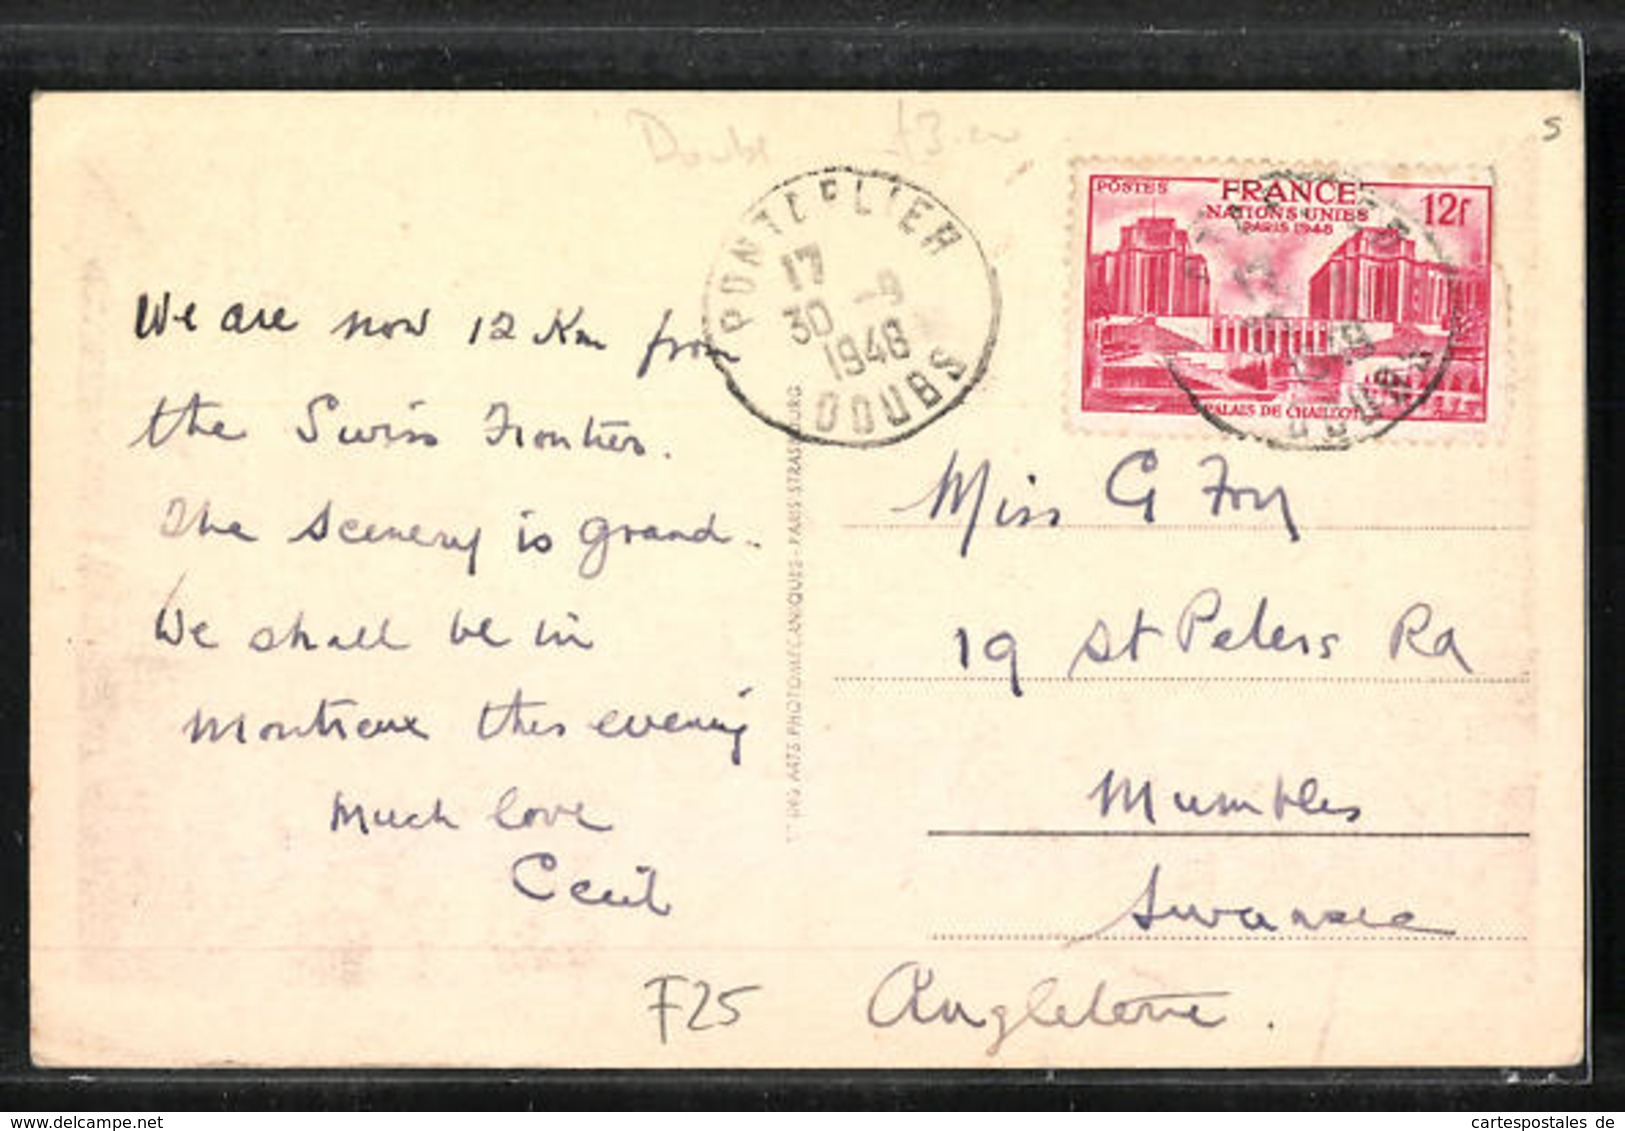 5
Doubs
POSTES FRANCE 12f
NATIONS UNIES
PARIS 1948
PALAIS DE CHAILLOT
PONTARLIER
17
30 -9
1948
DOUBS
We are now 12 Km from
the Swiss Frontier.
The Scenery is grand.
We shall be in
Montreux this evening
Much love
Cecil
F25
ARTS PHOTOMÉCANIQUES - PARIS STRASBOURG
Miss G Fry
19 St Peters Rd
Mumbles
Swansea
Angleterre.
cartespostales de